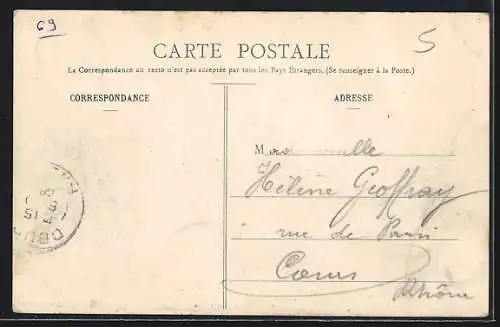 69
5
CARTE POSTALE
La Correspondance au recto n'est pas acceptée par tous les Pays Etrangers. (Se renseigner à la Poste.)
CORRESPONDANCE
ADRESSE
Mademoiselle
Hélène Geoffray
rue de Paris
Cours
Rhône